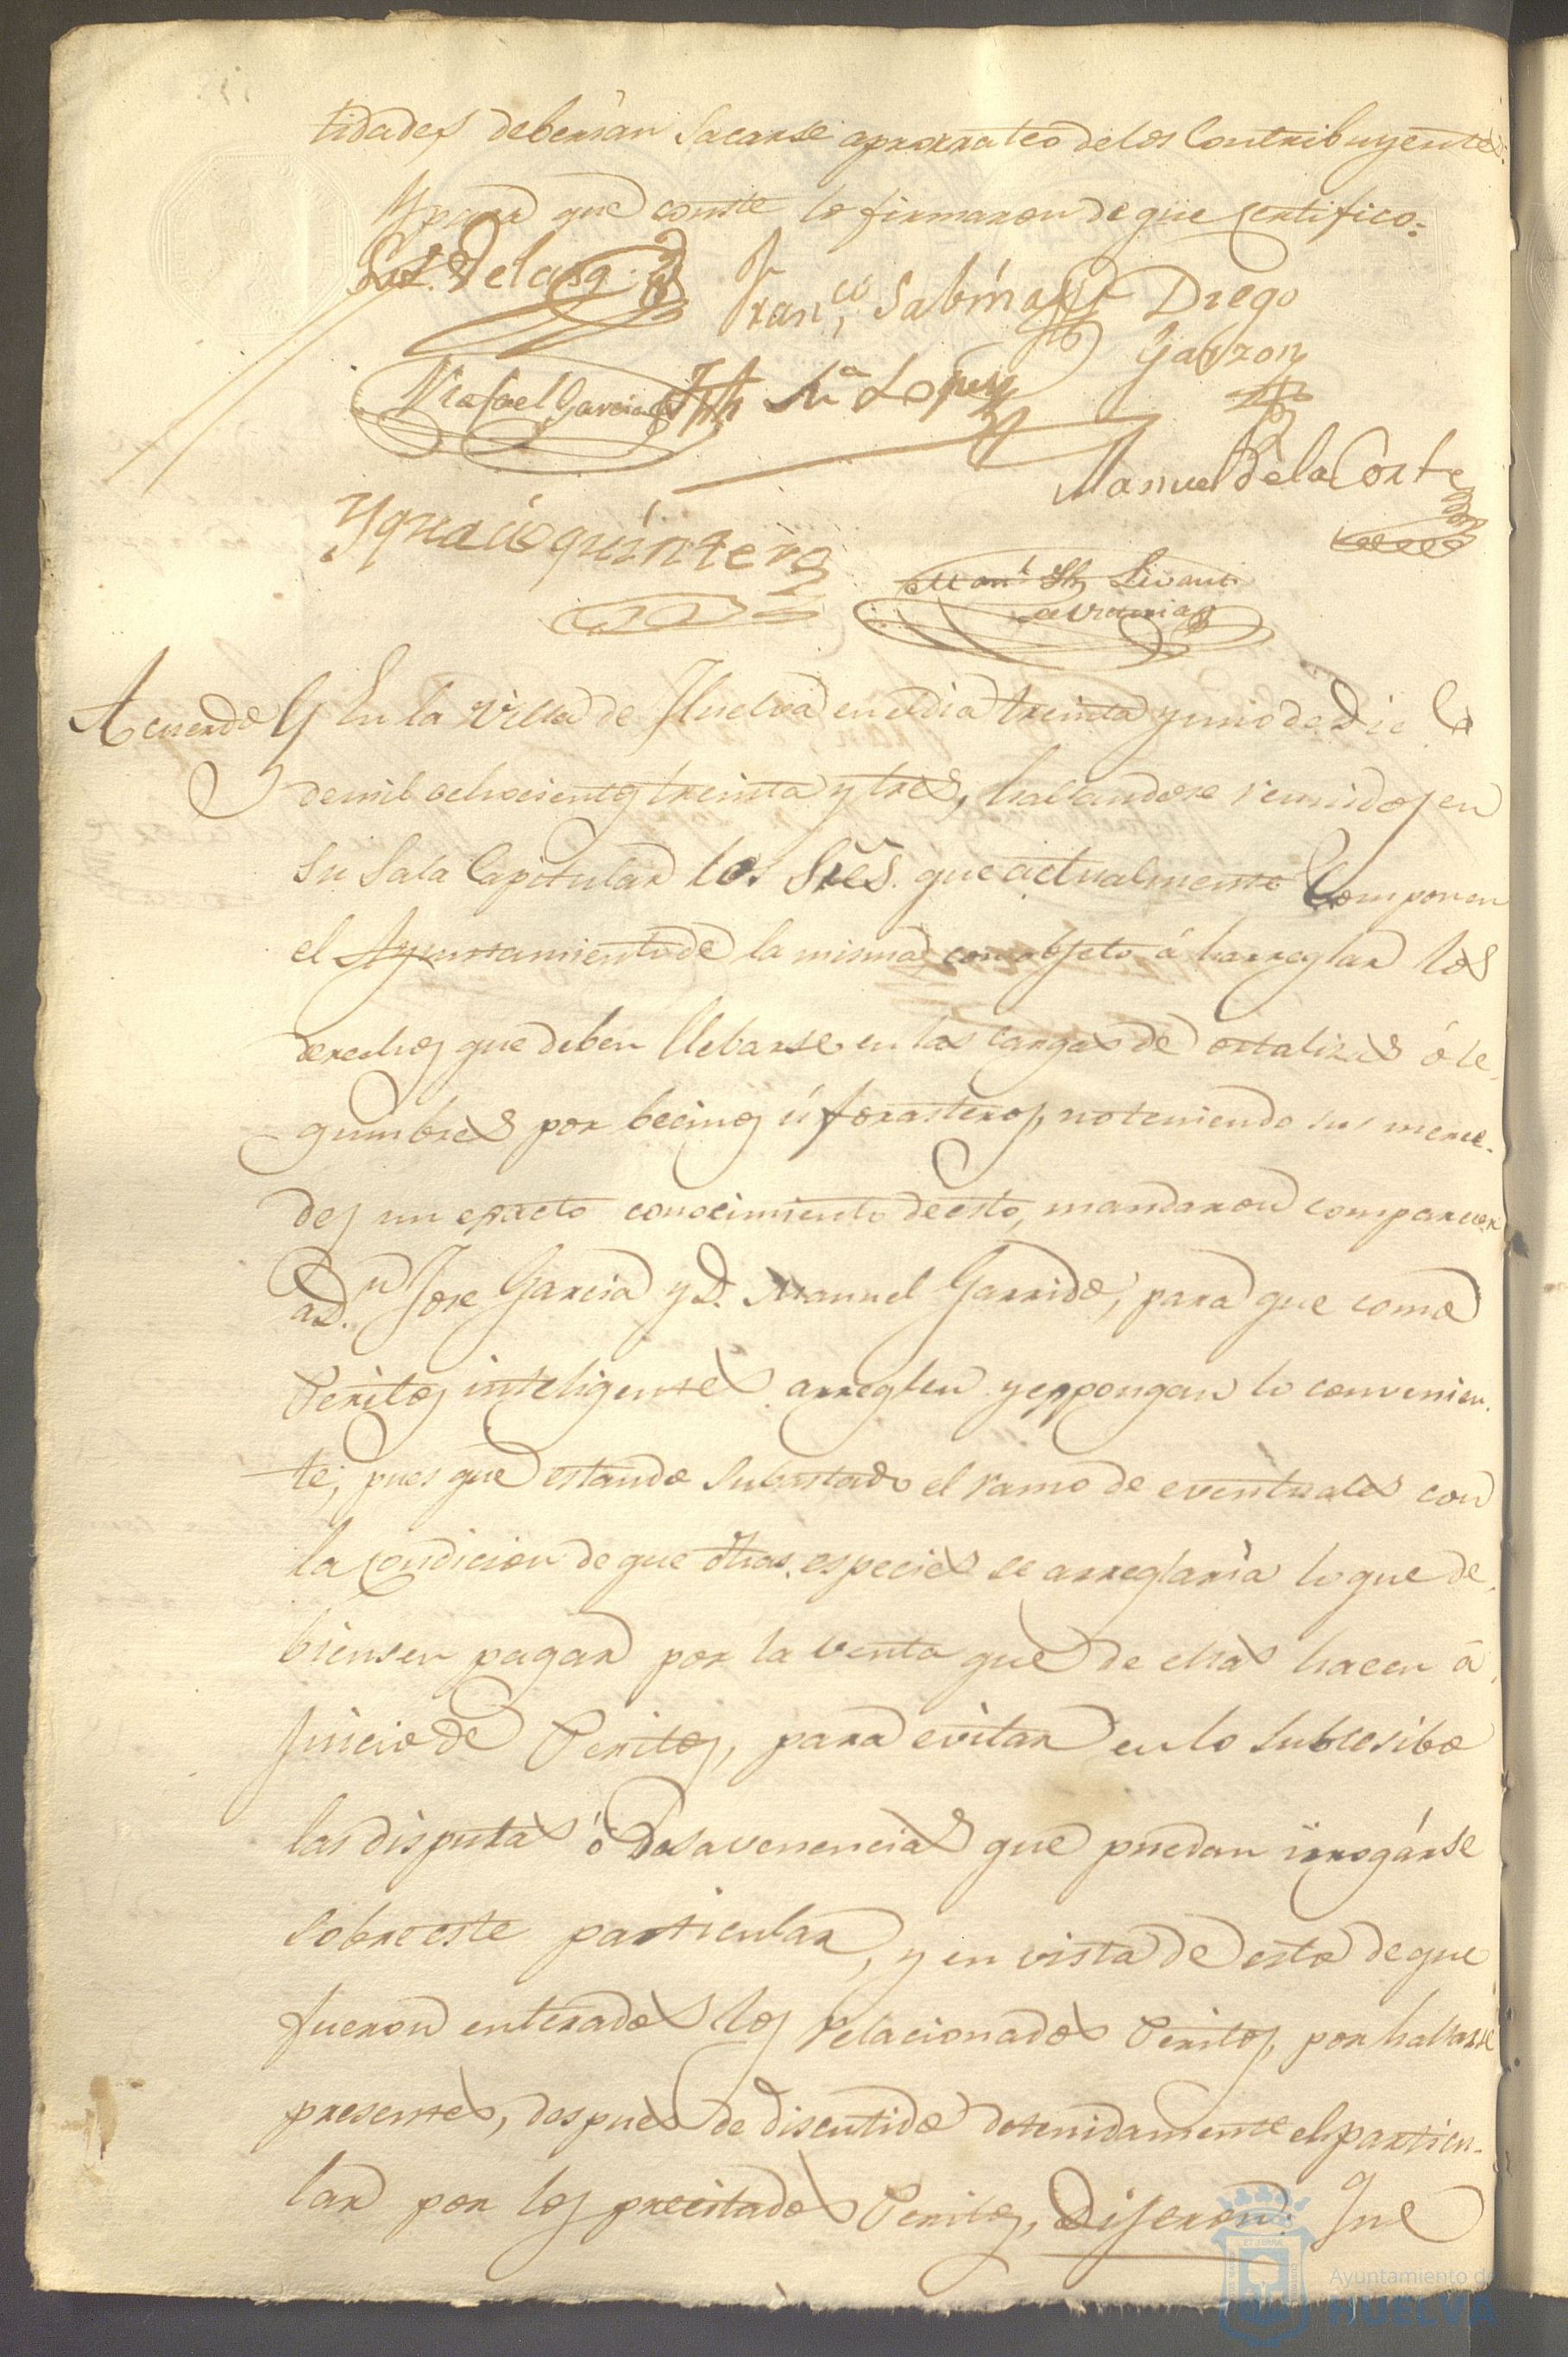 tidades deberian sacarse aprorrateo delos Contribuyentes.
Y para que conste lo firmaron de que sertifico=
Franco. Sabina Diego
Garzon
Rafael Garcia Ma Lopez
Manuel de la Corte
Ygnacio quintero
Manl.
Acuerdo En la Villa de Huelva en el dia treinta y uno de Dice
demil ochocientos treinta y tres, hallandose reunidos en
su Sala Capitular los Sres. que actualmente Componen
el Ayuntamiento de la misma, con objeto á harreglar los
derechos que deben llebarse en las cargas de ortalizas ó le-
gumbres por becinos ú forasteros, no teniendo sus merce-
des un exacto conocimiento de esto, mandaron comparecer
a Dn. Jose Garcia y D. Manuel Garrido, para que como
Peritos inteligentes arreglen y expongan lo convenien-
te, pues que estando subastado el ramo de eventuales con
la Condicion de que otras especies se arreglaria lo que de-
biensen pagar por la venta que de ellas hacen á
Juicio de Peritos, para evitar en lo subcesibo
las disputas ó desavenencias que puedan irrogárse
sobre este particular, y en vista de esto de que
fueron enterados los relacionados Peritos, por hallarse
presentes, despues de discutido detenidamente el particu-
lar por los precitados Peritos, Dijeron: Que
Ayuntamiento de
HUELVA